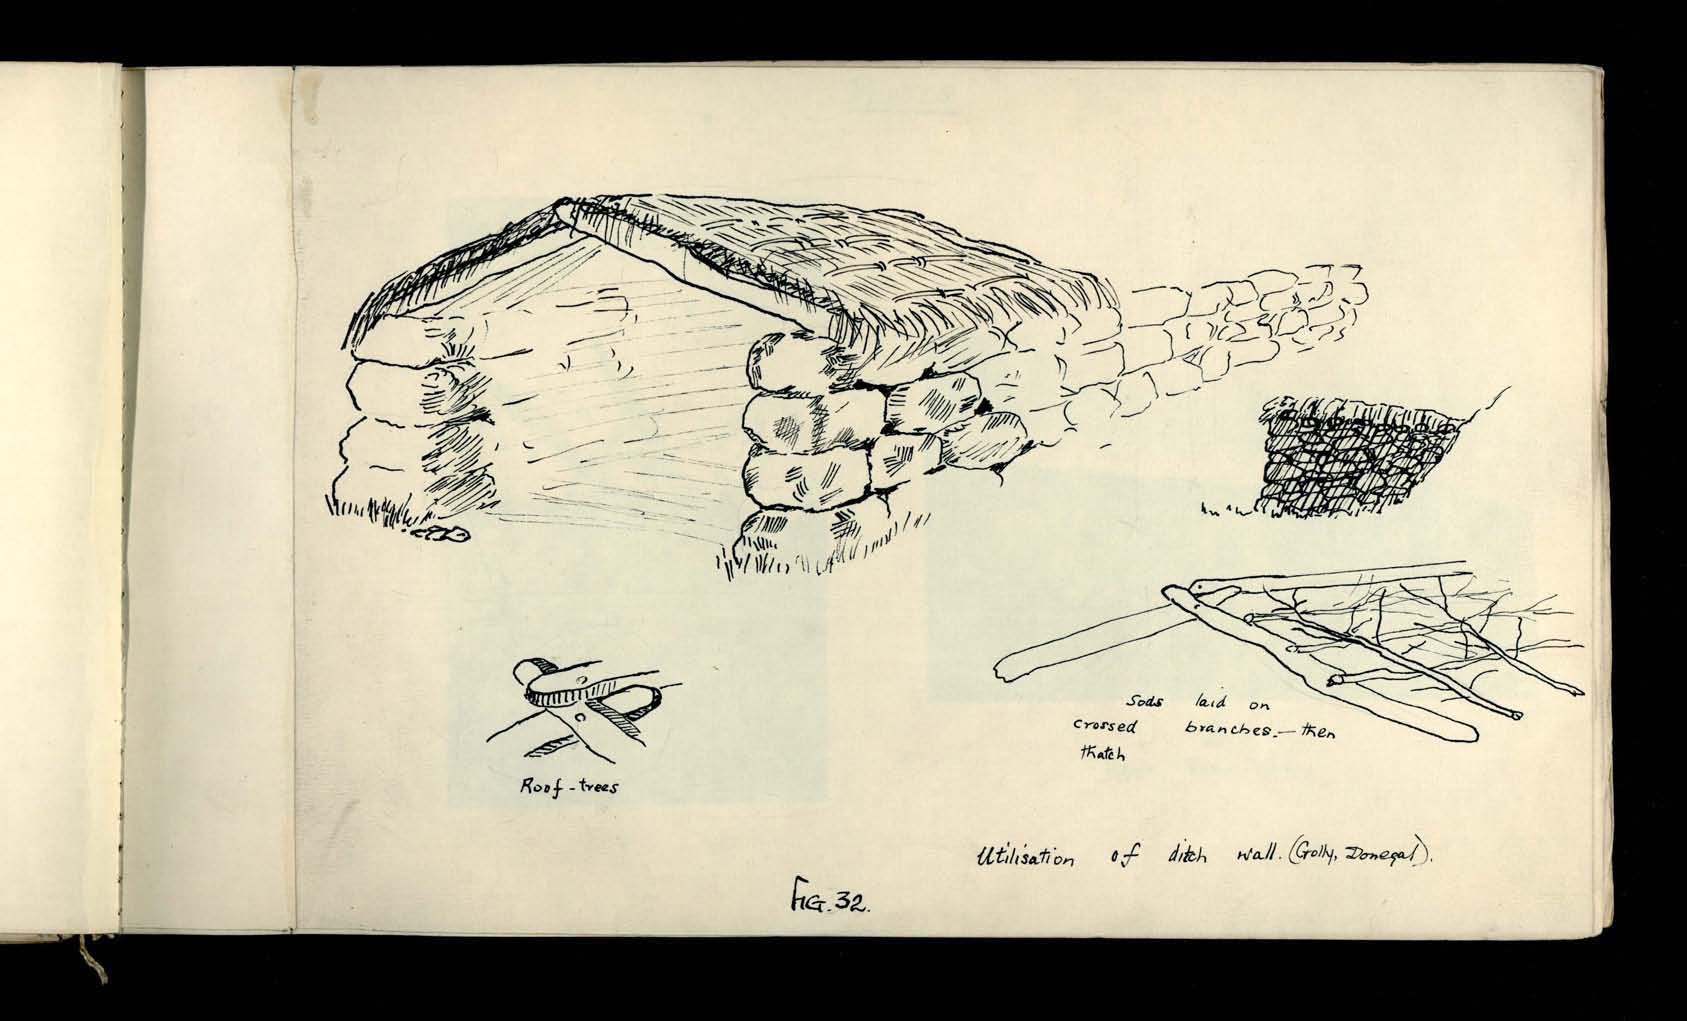 Roof-trees
Sods laid on
crossed branches.— then
thatch
Utilisation of ditch wall. (Golly, Donegal).
FIG. 32.